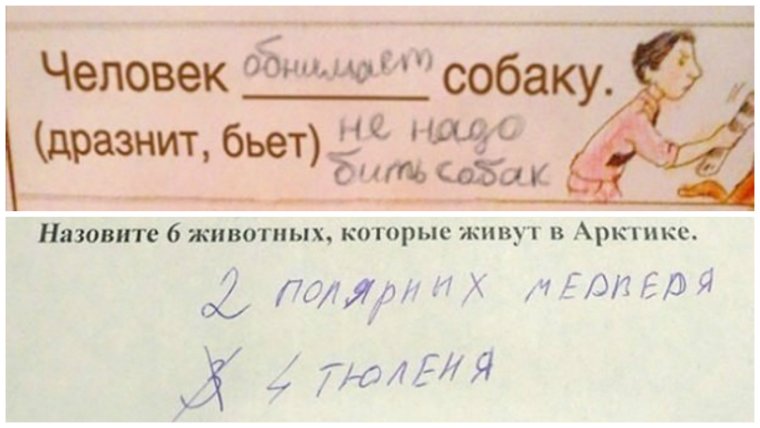 Человек обнимает собаку.
(дразнит, бьет) не надо
бить собак
Назовите 6 животных, которые живут в Арктике.
2 полярных медведя
3 4 тюленя